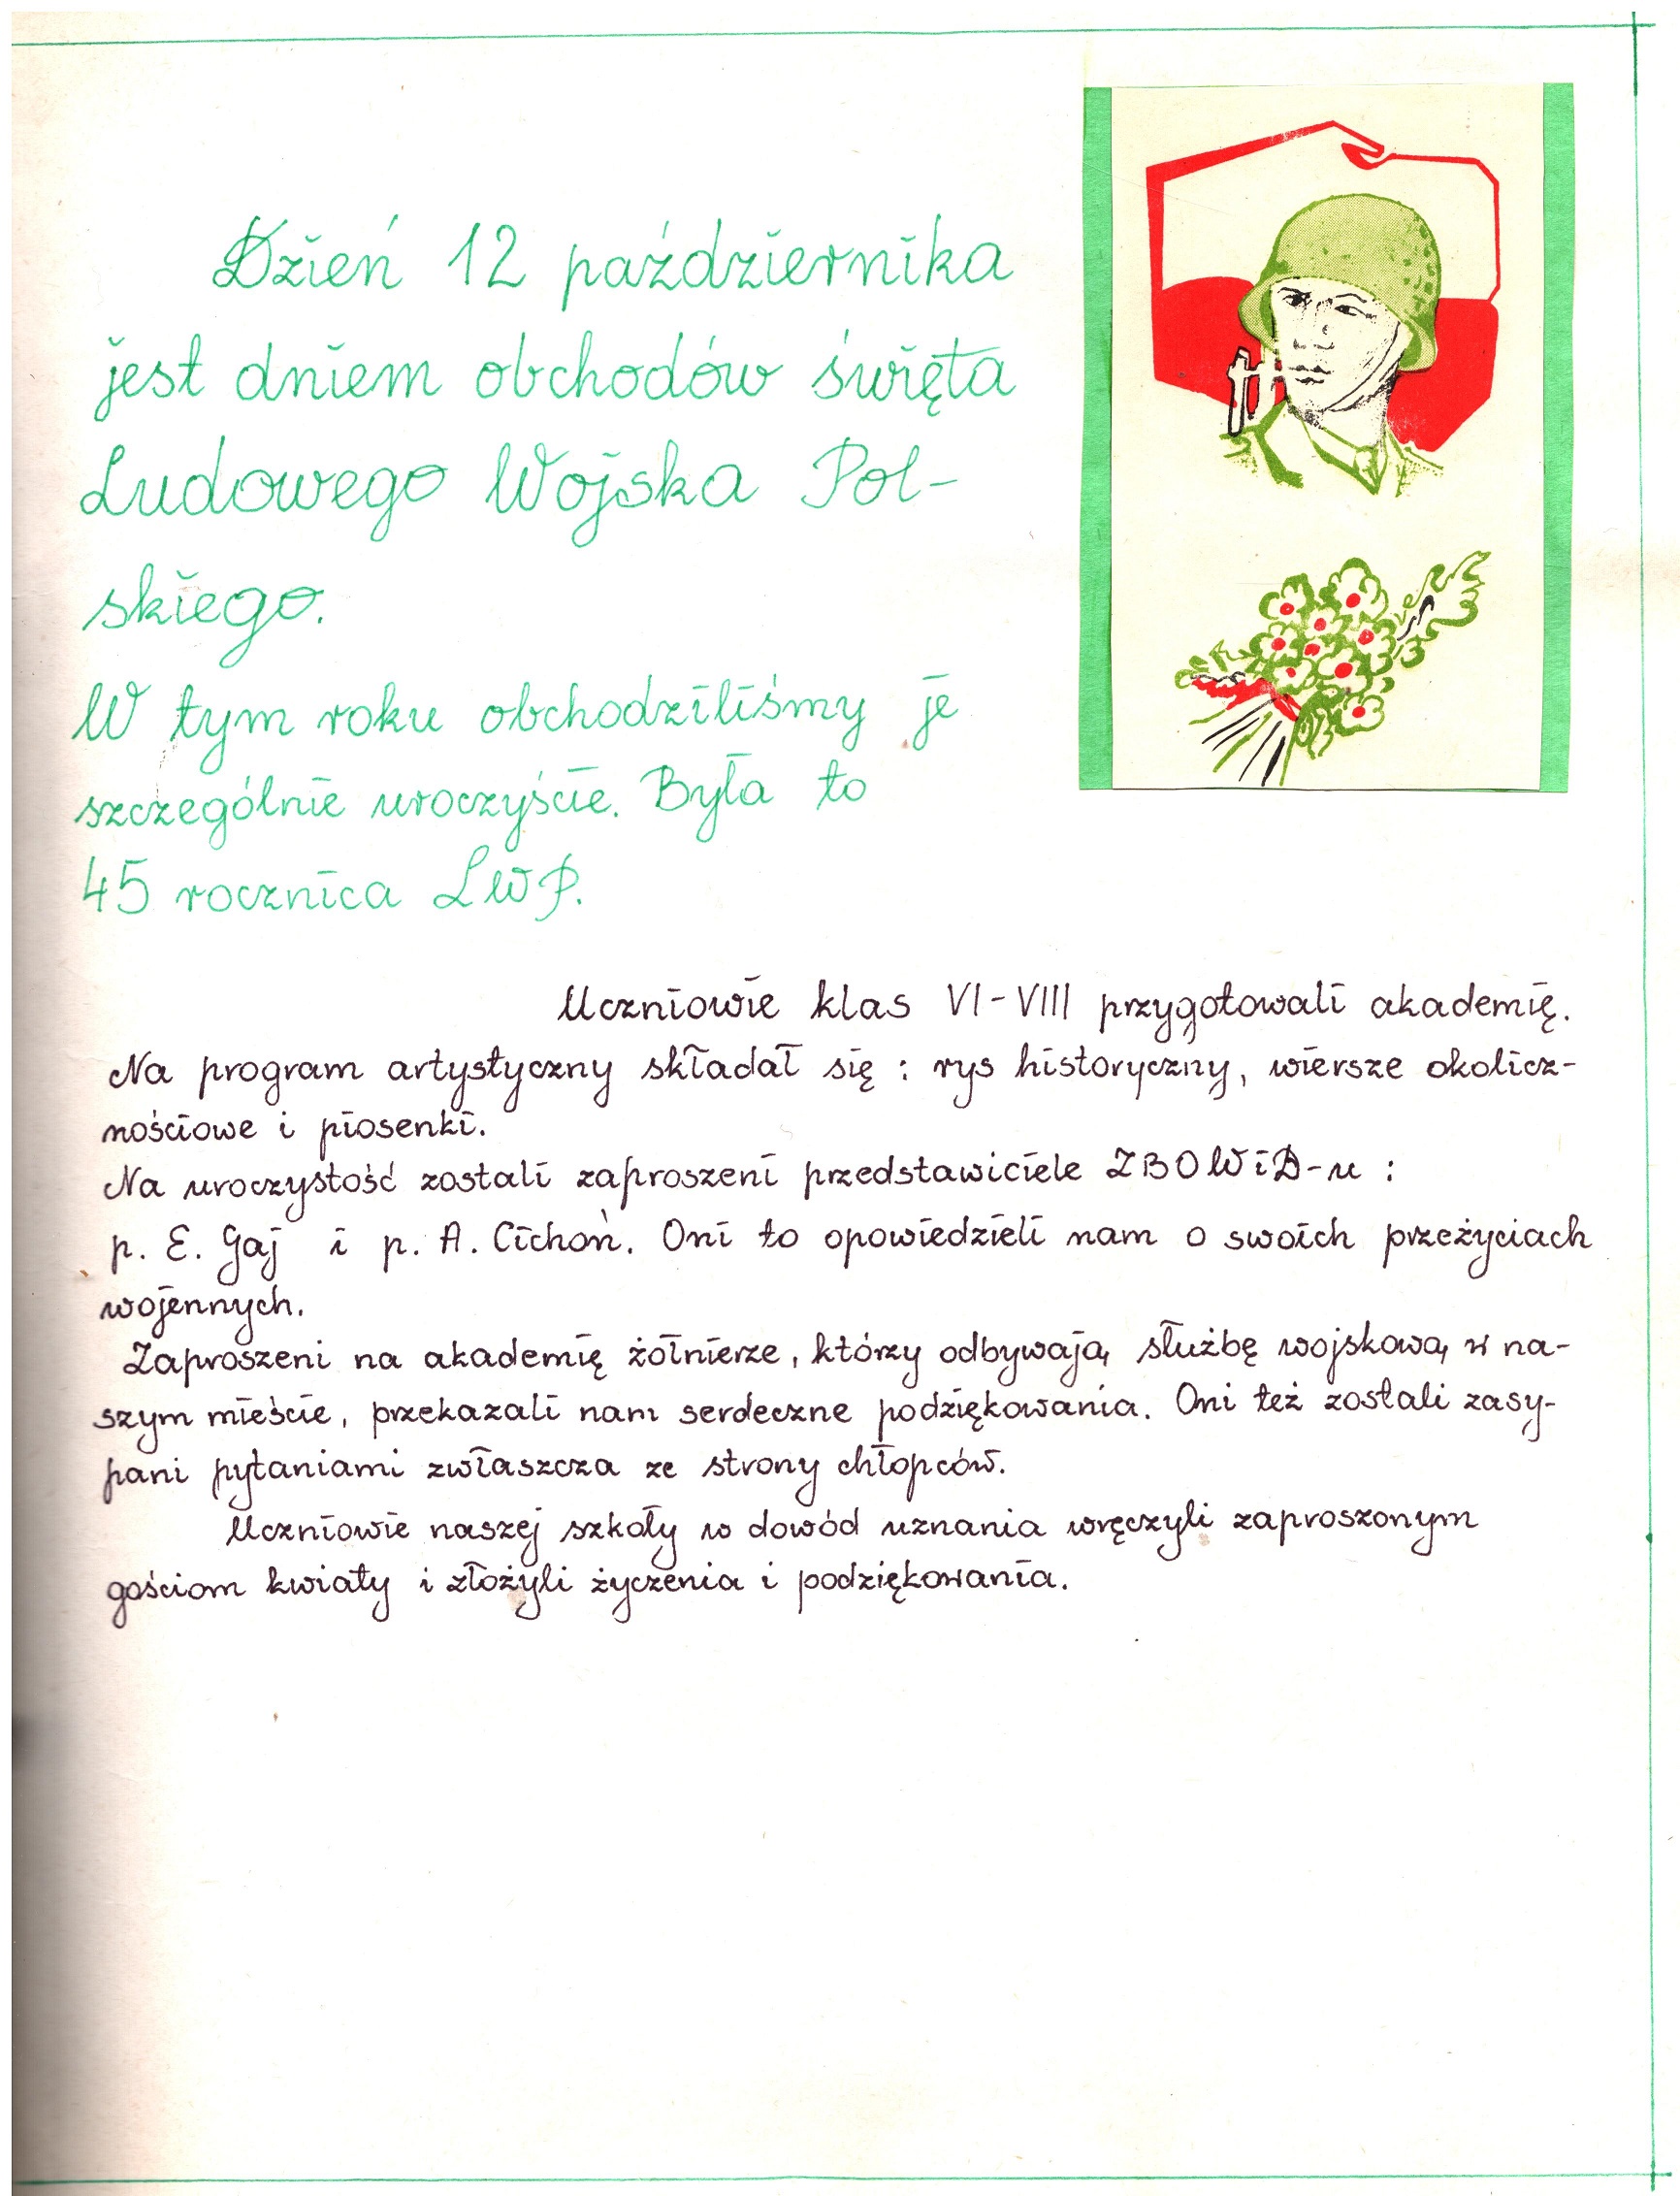 Dzień 12 października
jest dniem obchodów święta
Ludowego Wojska Pol-
skiego.
W tym roku obchodziliśmy je
szczególnie uroczyście. Była to
45 rocznica LWP.
Uczniowie klas VI-VIII przygotowali akademię.
Na program artystyczny składał się : rys historyczny, wiersze okolicz-
nościowe i piosenki.
Na uroczystość zostali zaproszeni przedstawiciele ZBOWiD-u :
p. E. Gaj i p. A. Cichoń. Oni to opowiedzieli nam o swoich przeżyciach
wojennych.
Zaproszeni na akademię żołnierze, którzy odbywają służbę wojskową w na-
szym mieście, przekazali nam serdeczne podziękowania. Oni też zostali zasy-
pani pytaniami zwłaszcza ze strony chłopców.
Uczniowie naszej szkoły w dowód uznania wręczyli zaproszonym
gościom kwiaty i złożyli życzenia i podziękowania.